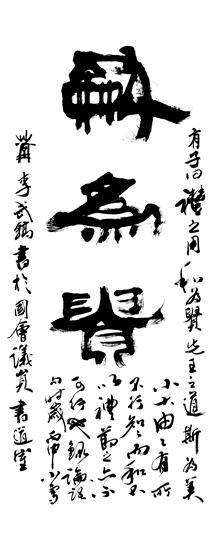 龢為貴
有子曰禮之用和為貴先王之道斯為美
小大由之有所
不行知和而和不
以禮節之亦不
可行也錄論語
句時歲丙申小雪
李武鎬書於國會議員書道室